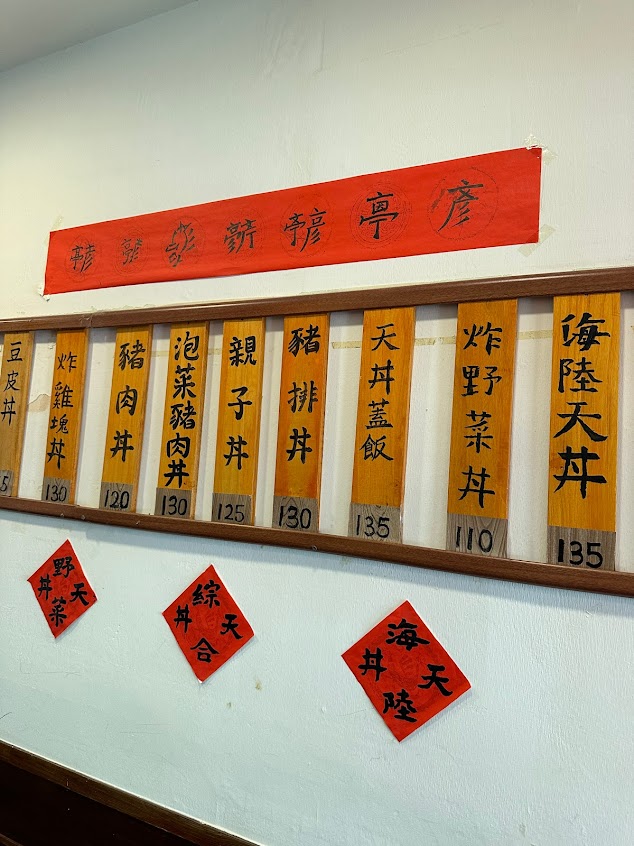 彥亭
海陸天丼
135
炸野菜丼
110
天丼蓋飯
135
豬排丼
130
親子丼
125
泡菜豬肉丼
130
豬肉丼
120
炸雞塊丼
130
豆皮丼
5
海陸天丼
綜合天丼
野菜天丼